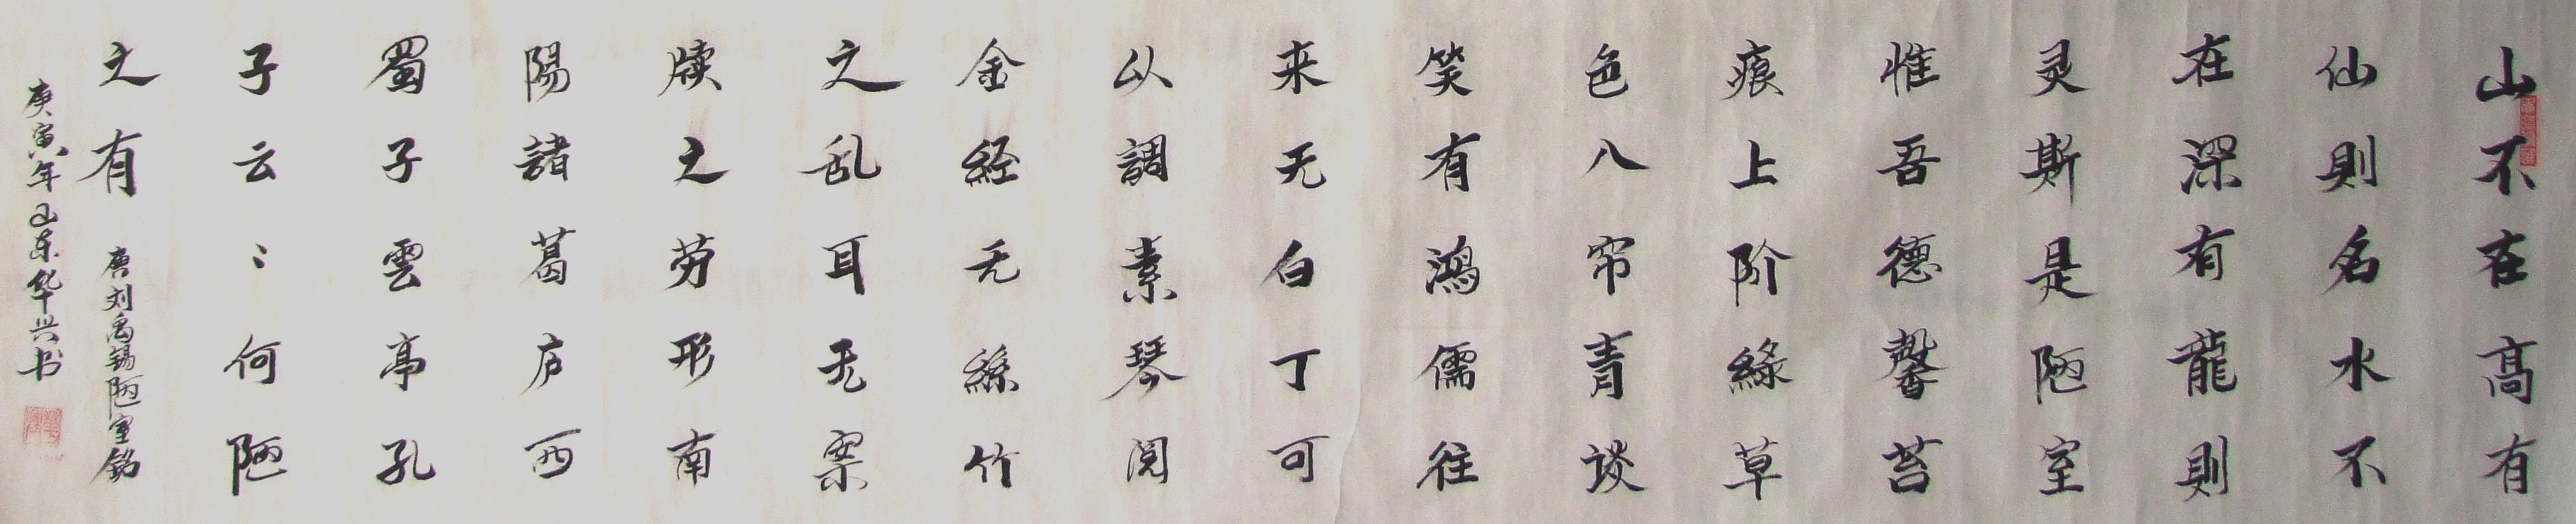 山不在高有
仙则名水不
在深有龍则
灵斯是陋室
惟吾德馨苔
痕上阶緑草
色入帘青谈
笑有鴻儒往
来无白丁可
以調素琴閲
金経无絲竹
之乱耳无案
牍之劳形南
陽諸葛庐西
蜀子雲亭孔
子云：何陋
之有
唐刘禹锡陋室铭
庚寅年山东华兴书